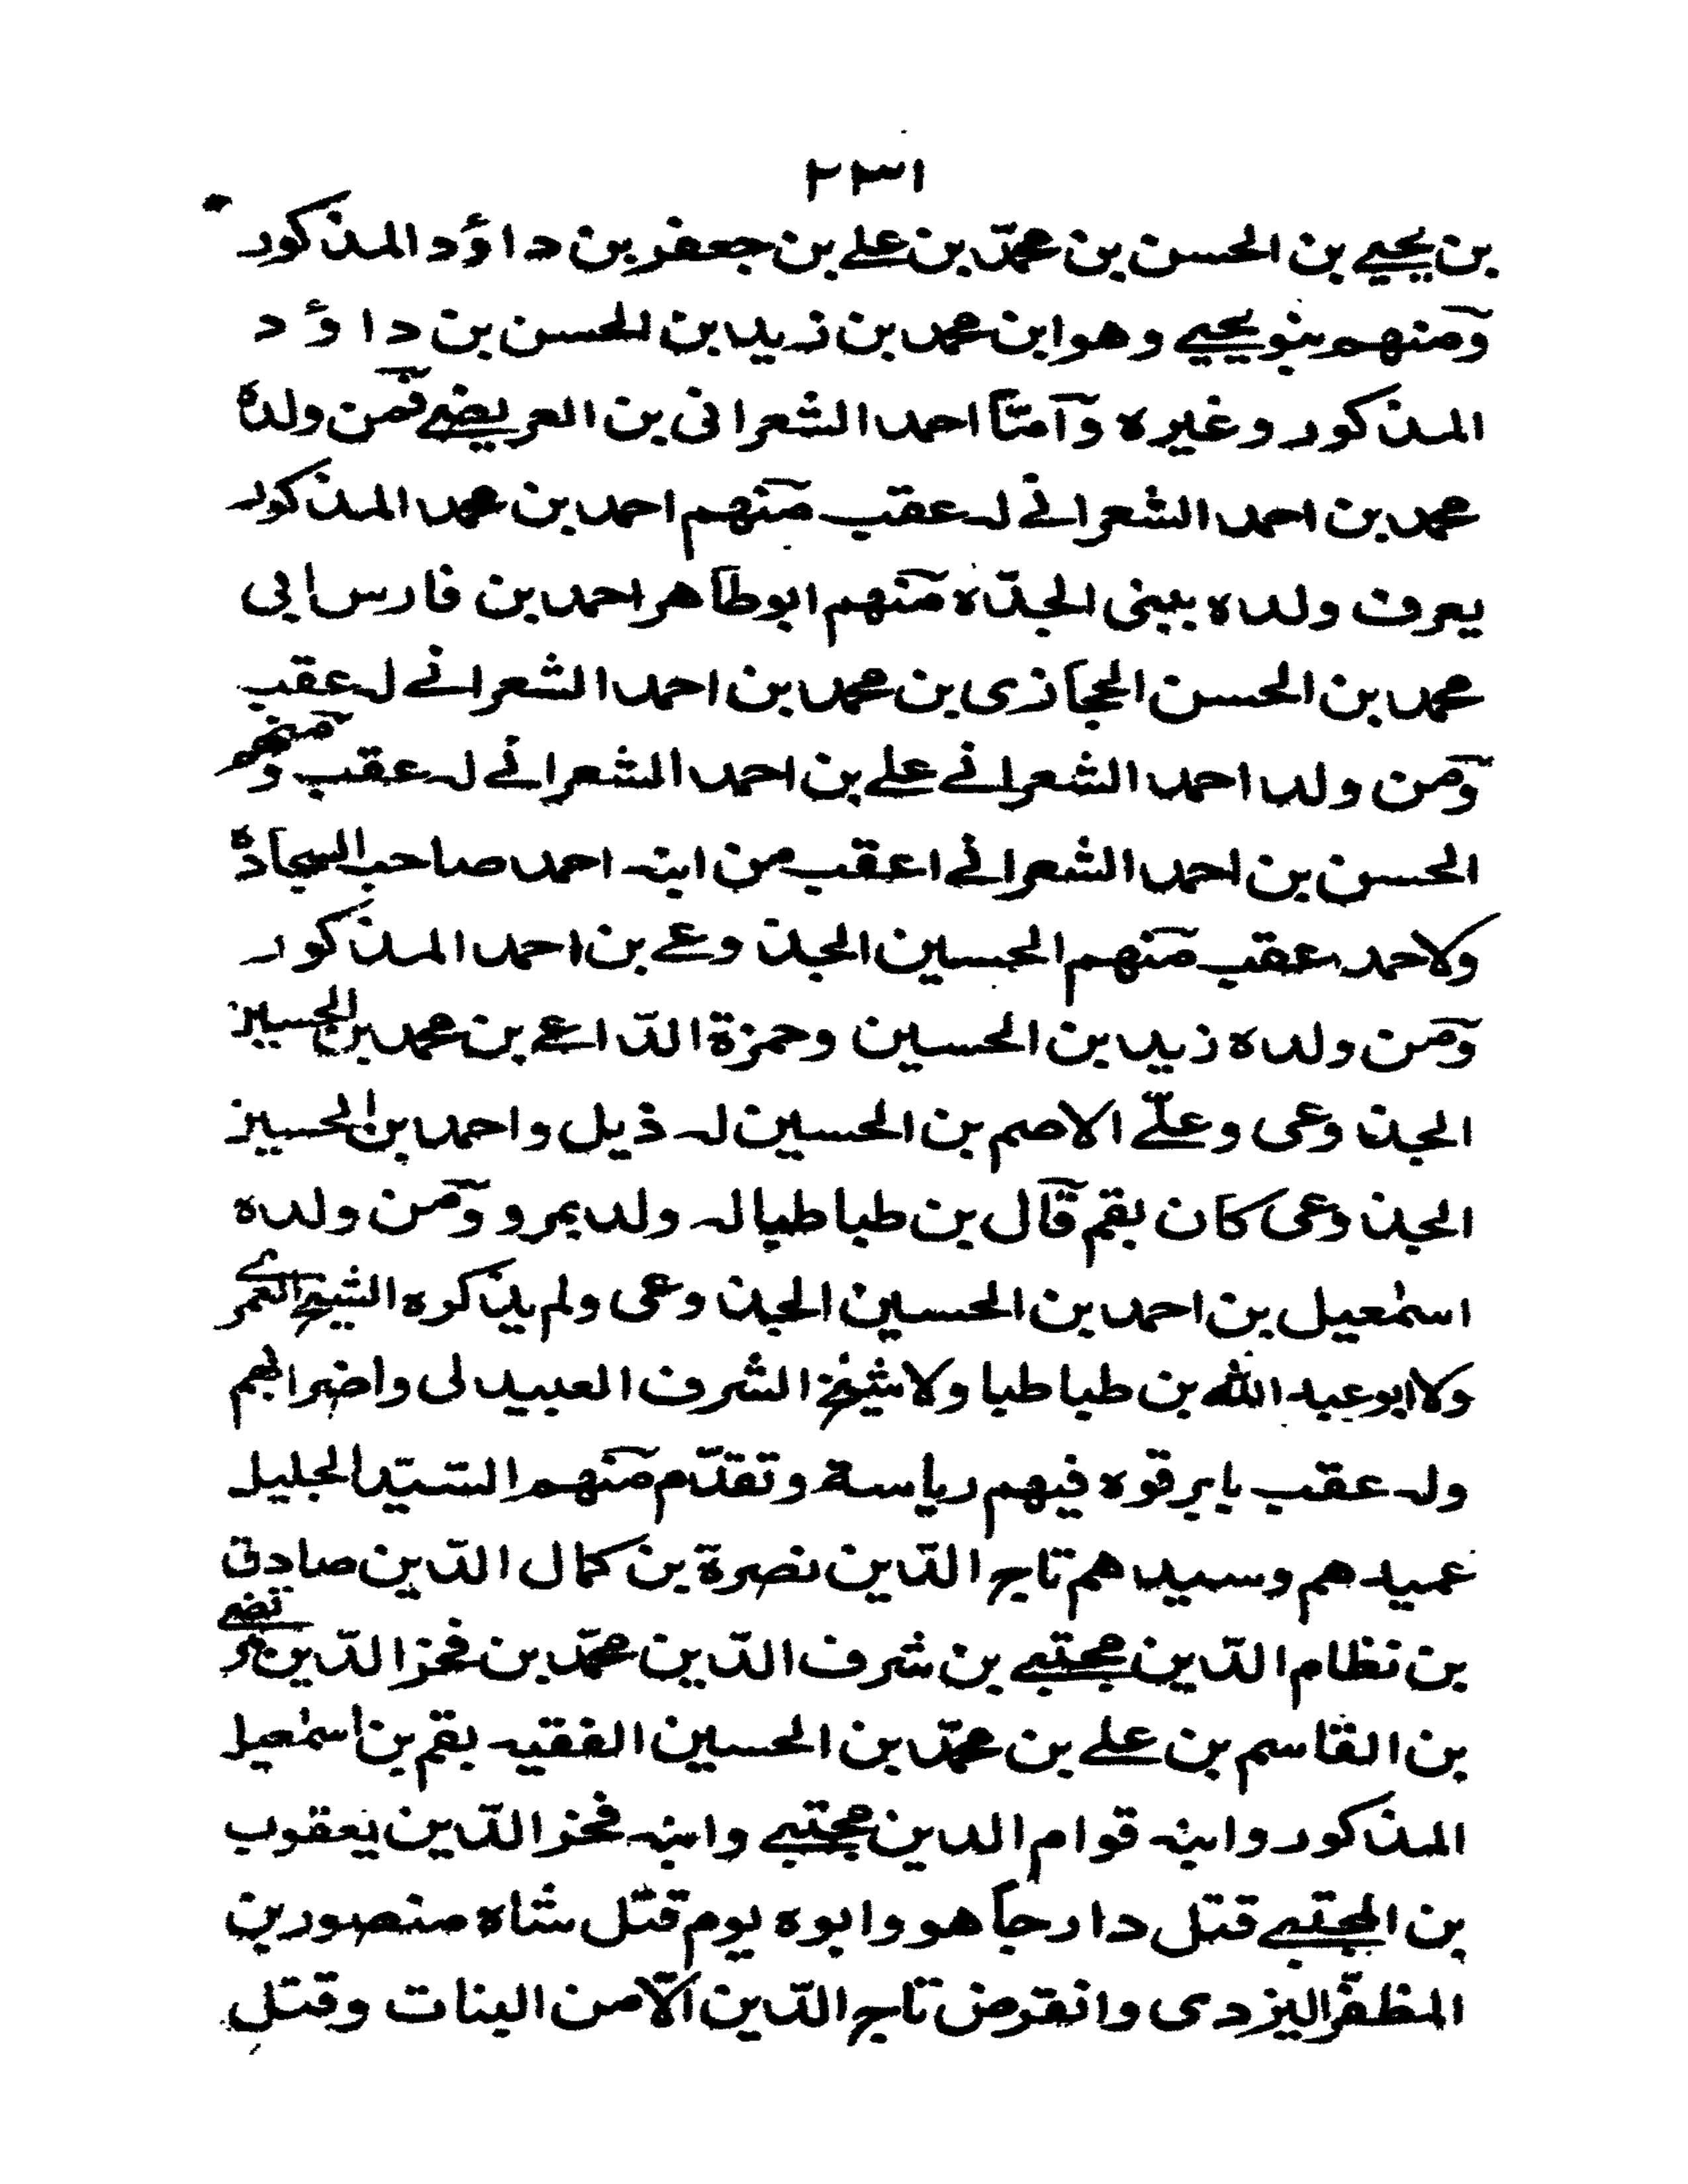 ٢٣١
بن يحيے بن الحسن بن محمّد بن علے بن جعفر بن داؤد المذكور
ومنهم بنو يحيے وهو ابن محمد بن زيد بن الحسن بن داؤد
المذكور وغيره وآمّا احمد الشعرانى بن العريضے فمن ولدهٗ
محمد بن احمد الشعرانے له عقب منهم احمد بن محمد المذكور
يعرف ولده ببنى الجدّه منهم ابو طاهر احمد بن فارس ابى
محمد بن الحسن الحجازى بن محمد بن احمد الشعرانے له عقب
ومن ولد احمد الشعرانے علے بن احمد الشعرانے له عقب ومنهم
الحسن بن احمد الشعرانے اعقب من ابنه احمد صاحب السجادة
ولاحمد عقب منهم الحسين الجذوعے بن احمد المذكور
ومن ولده زيد بن الحسين وحمزة الدّاعے بن محمد بن الحسين
الجذوعى وعلّے الاصم بن الحسين له ذيل واحمد بن الحسين
الجذوعى كان بقم قال بن طباطبا له ولد بمرو ومن ولده
اسمٰعيل بن احمد بن الحسين الجذوعى ولم يذكره الشيخ العمرے
ولا ابو عبد الله بن طباطبا ولا شيخ الشرف العبيدلى واضرابهم
وله عقب بابرقوه فيهم رياسة وتقدّم منهم السّيّد الجليل
عميدهم وسيدهم تاج الدّين نصرة بن كمال الدّين صادق
بن نظام الدّين مجتبے بن شرف الدّين محمّد بن فخر الدّين مرتضے
بن القاسم بن علے بن محمّد بن الحسين الفقيه بقم بن اسمٰعيل
المذكور وابنه قوام الدين مجتبے وابنه فخر الدّين يعقوب
بن المجتبے قتل دارجا هو وابوه يوم قتل شاه منصور بن
المظفّر اليزدى وانقرض تاج الدّين الّا من البنات وقتل